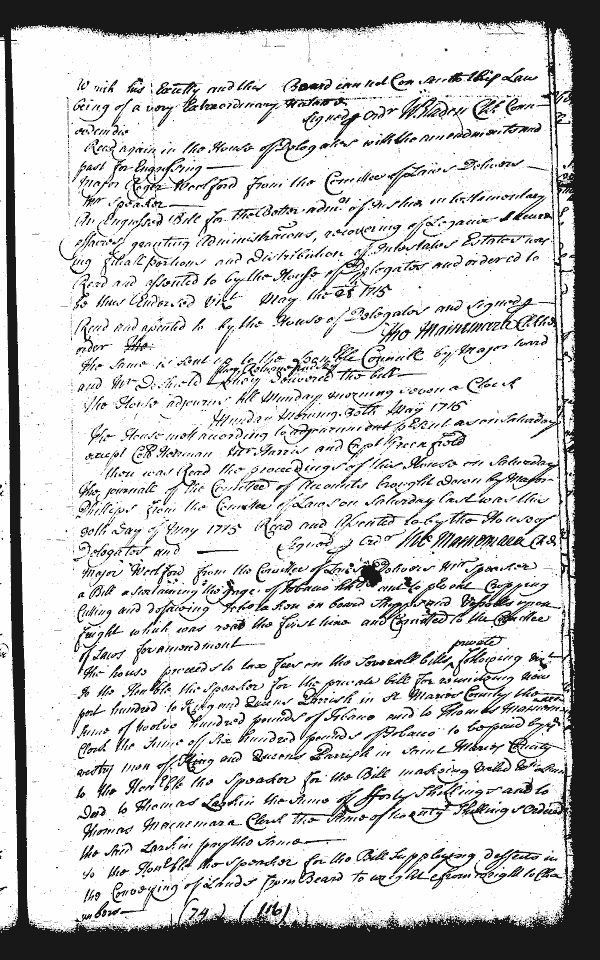 his Excelly and this Board can not Consent to this Law
being of a very Extraordinary nature
Signed p ordr W Bladen Cl Coun
Read again in the House of Delegates with the amendments and
past for Engrossing
Major Roger Woolford from the Comittee of Laws Delivers
Mr Speaker
An Engrossed Bill for the Better adm of Justice in testamentary
affaires granting Administracons, recovering of Legacies
filiall portions and Distribution of Intestates Estates
Read and assented to by the House of Delegates and ordered to
be thus Endorsed Vizt May the 28 1715
Read and assented to by the House of Delegates and Signed p
order Tho Macnemara
The same is sent up to the Council by Major Ward
and Mr they returne and say they delivered the bill
The House adjourns till Munday morning seven a Clock
Munday Morning 30th May 1715
The House mett according to adjournment present as on Saturday
except Coll Herman Mr Harris and Capt Greenfield
then was Read the proceedings of this House on Saturday
the Journale of the Comittee of Accounts brought down by Major
Phillips from the Comittee of Laws on Saturday last was this
30th Day of May 1715 Read and Assented to by the House of
Delegates and Signed p ordr Tho Macnemara
Major Woolford from the Comittee of Laws Delivers Mr Speaker
a Bill ascertaining the Gage of Tobacco and to prevent Cropping
Cutting and defacing Tobacco taken on board Shipps and Vessells upon
freight which was read the first time and Comitted to the Comittee
of Laws for amendment
The house proceeds to lay Fees on the Severall private bills following vizt
To the Honble the Speaker for the private bill for reuniteing New
port hundred to King and Queens Parish in St Maries County the
Sume of twelve hundred pounds of Tobacco and to Thomas Macnemara
Clerk the Sume of Six hundred pounds of Tobacco to be paid by the
vestry men of King and Queens Parish in Saint Maries County
to the Honble the Speaker for the Bill makeing Valid
Deed to Thomas Larkin the Sume of fforty Shillings and to
Thomas Macnemara Clerk the Sume of twenty Shillings Ordered
the said Larkin pay the same
To the Honble the Speaker for the Bill Supplying deffects in
the Conveying of Lands from Beard to Wright & from Wright to
mbers (74) (116)